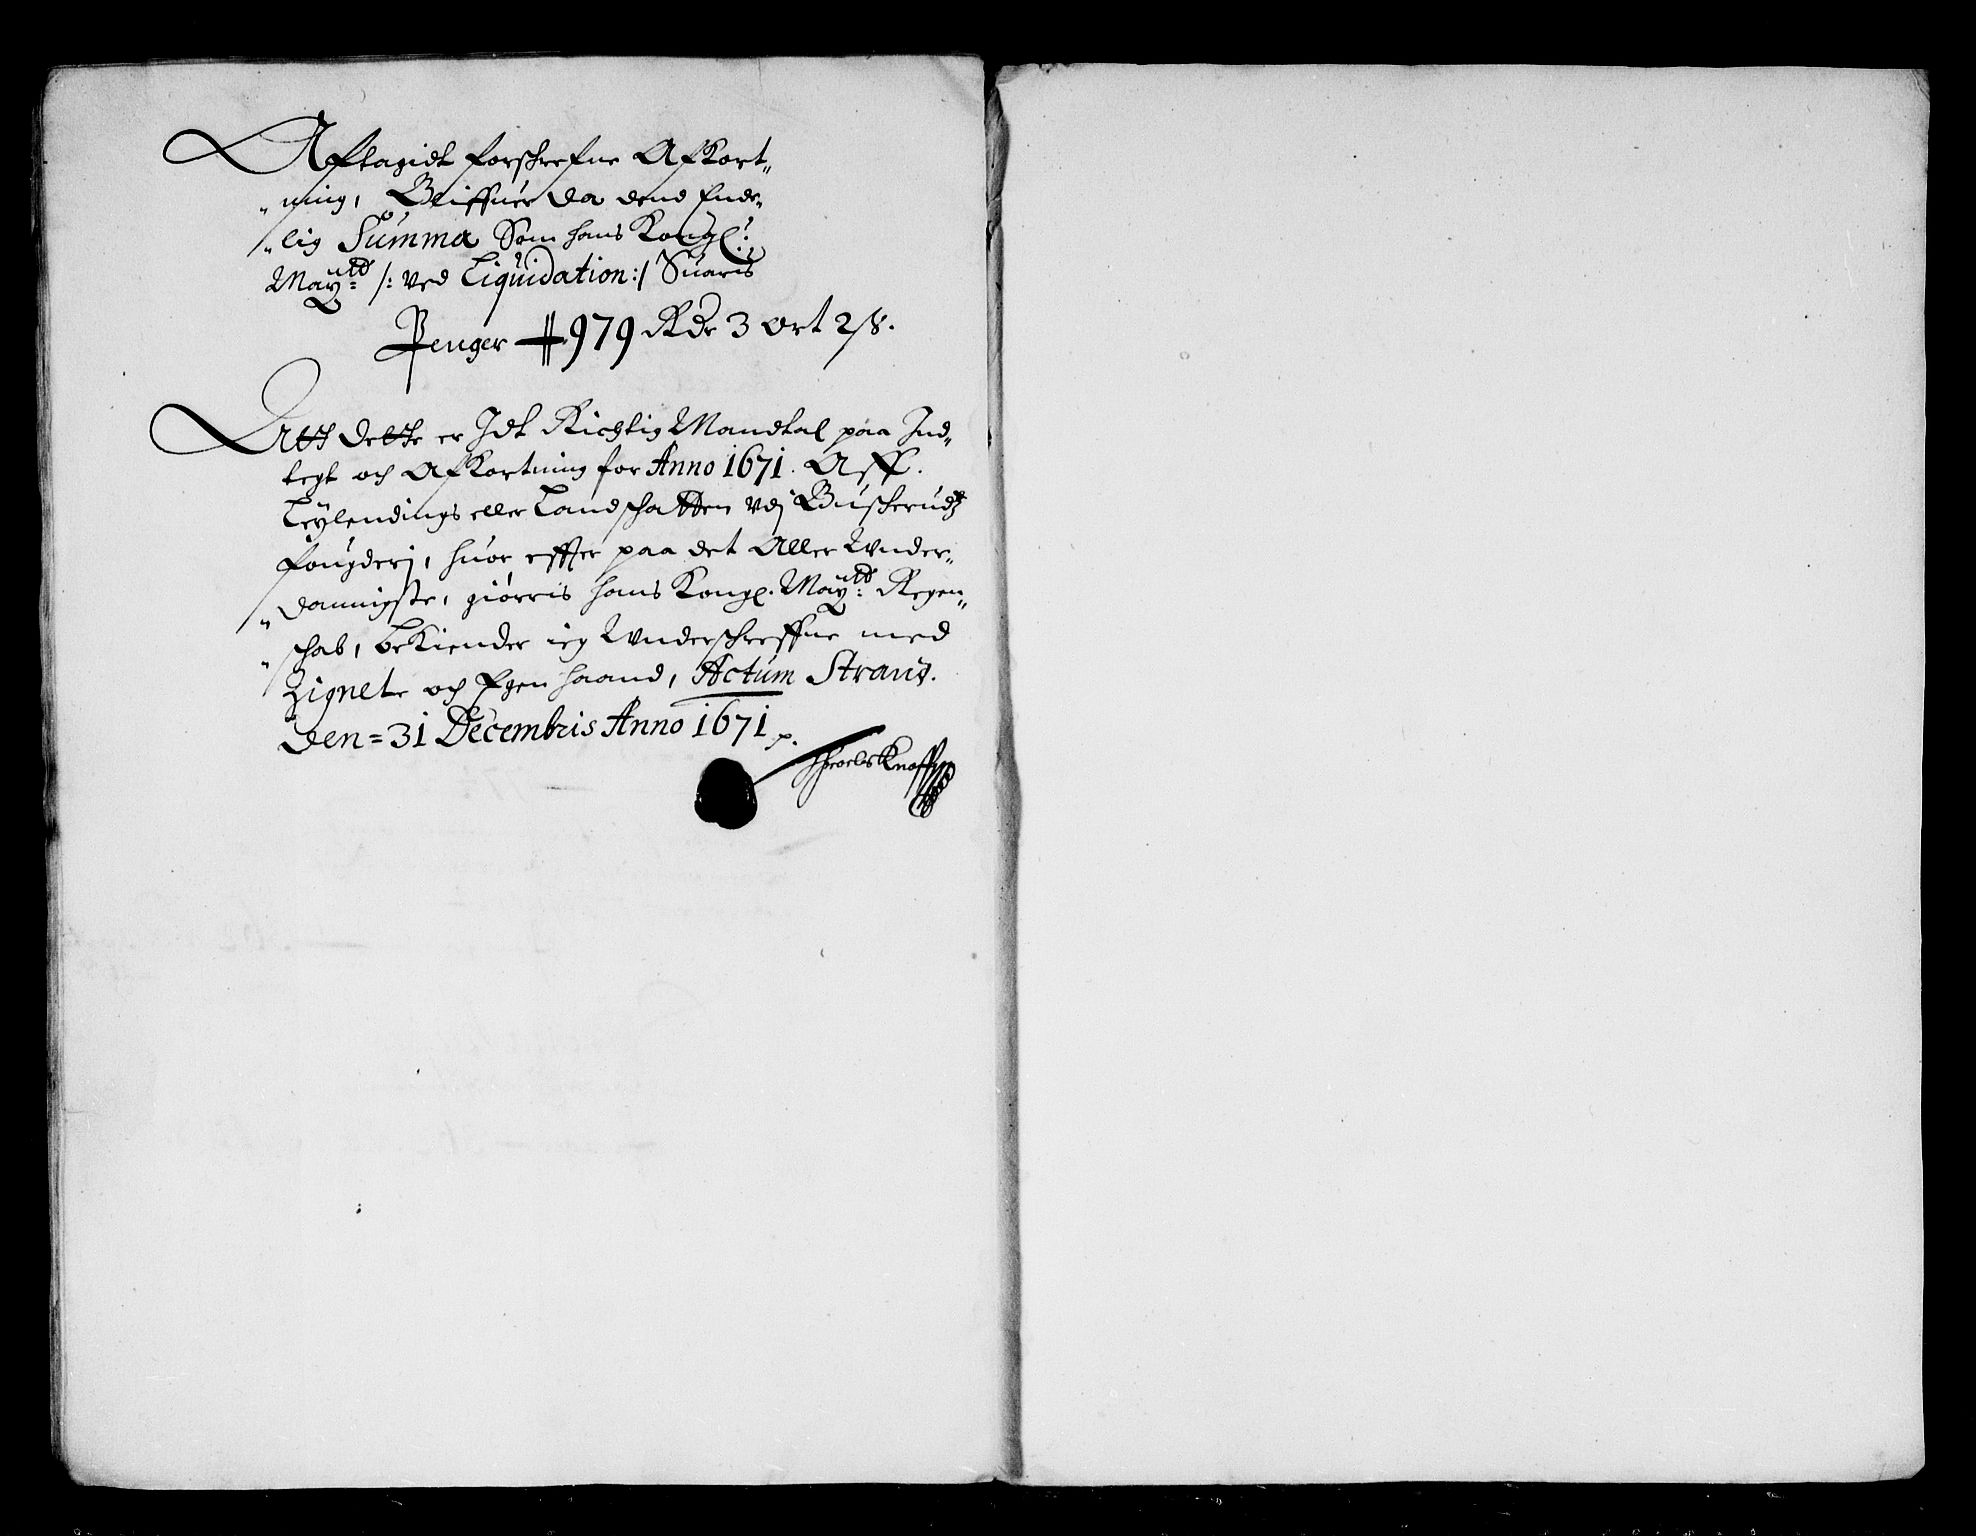 Aftagidt forschrefne Afkort„
„ning, Bliffuer da dend Ende„
„lig Summa Som hans Kongl:
Maytt: /: ved Liquidation :/ Suaris
Penger 979 Rdr 3 ort 2 s.
Att dette er Idt Richtig Mandtal paa Ind„
tegt och Afkortning for Anno 1671. Aff.
Leylendings eller Landschatten vdj Buskerudtz
fougderj, huor effter paa det Aller Vnder„
„dannigste, giørris hans Kongl. Maytt: Regen„
„schab, bekiender ieg Vnderschreffne med
Zignete och Egen haand, Actum Strand.
Den = 31 Decembris Anno 1671 p.
Knoff